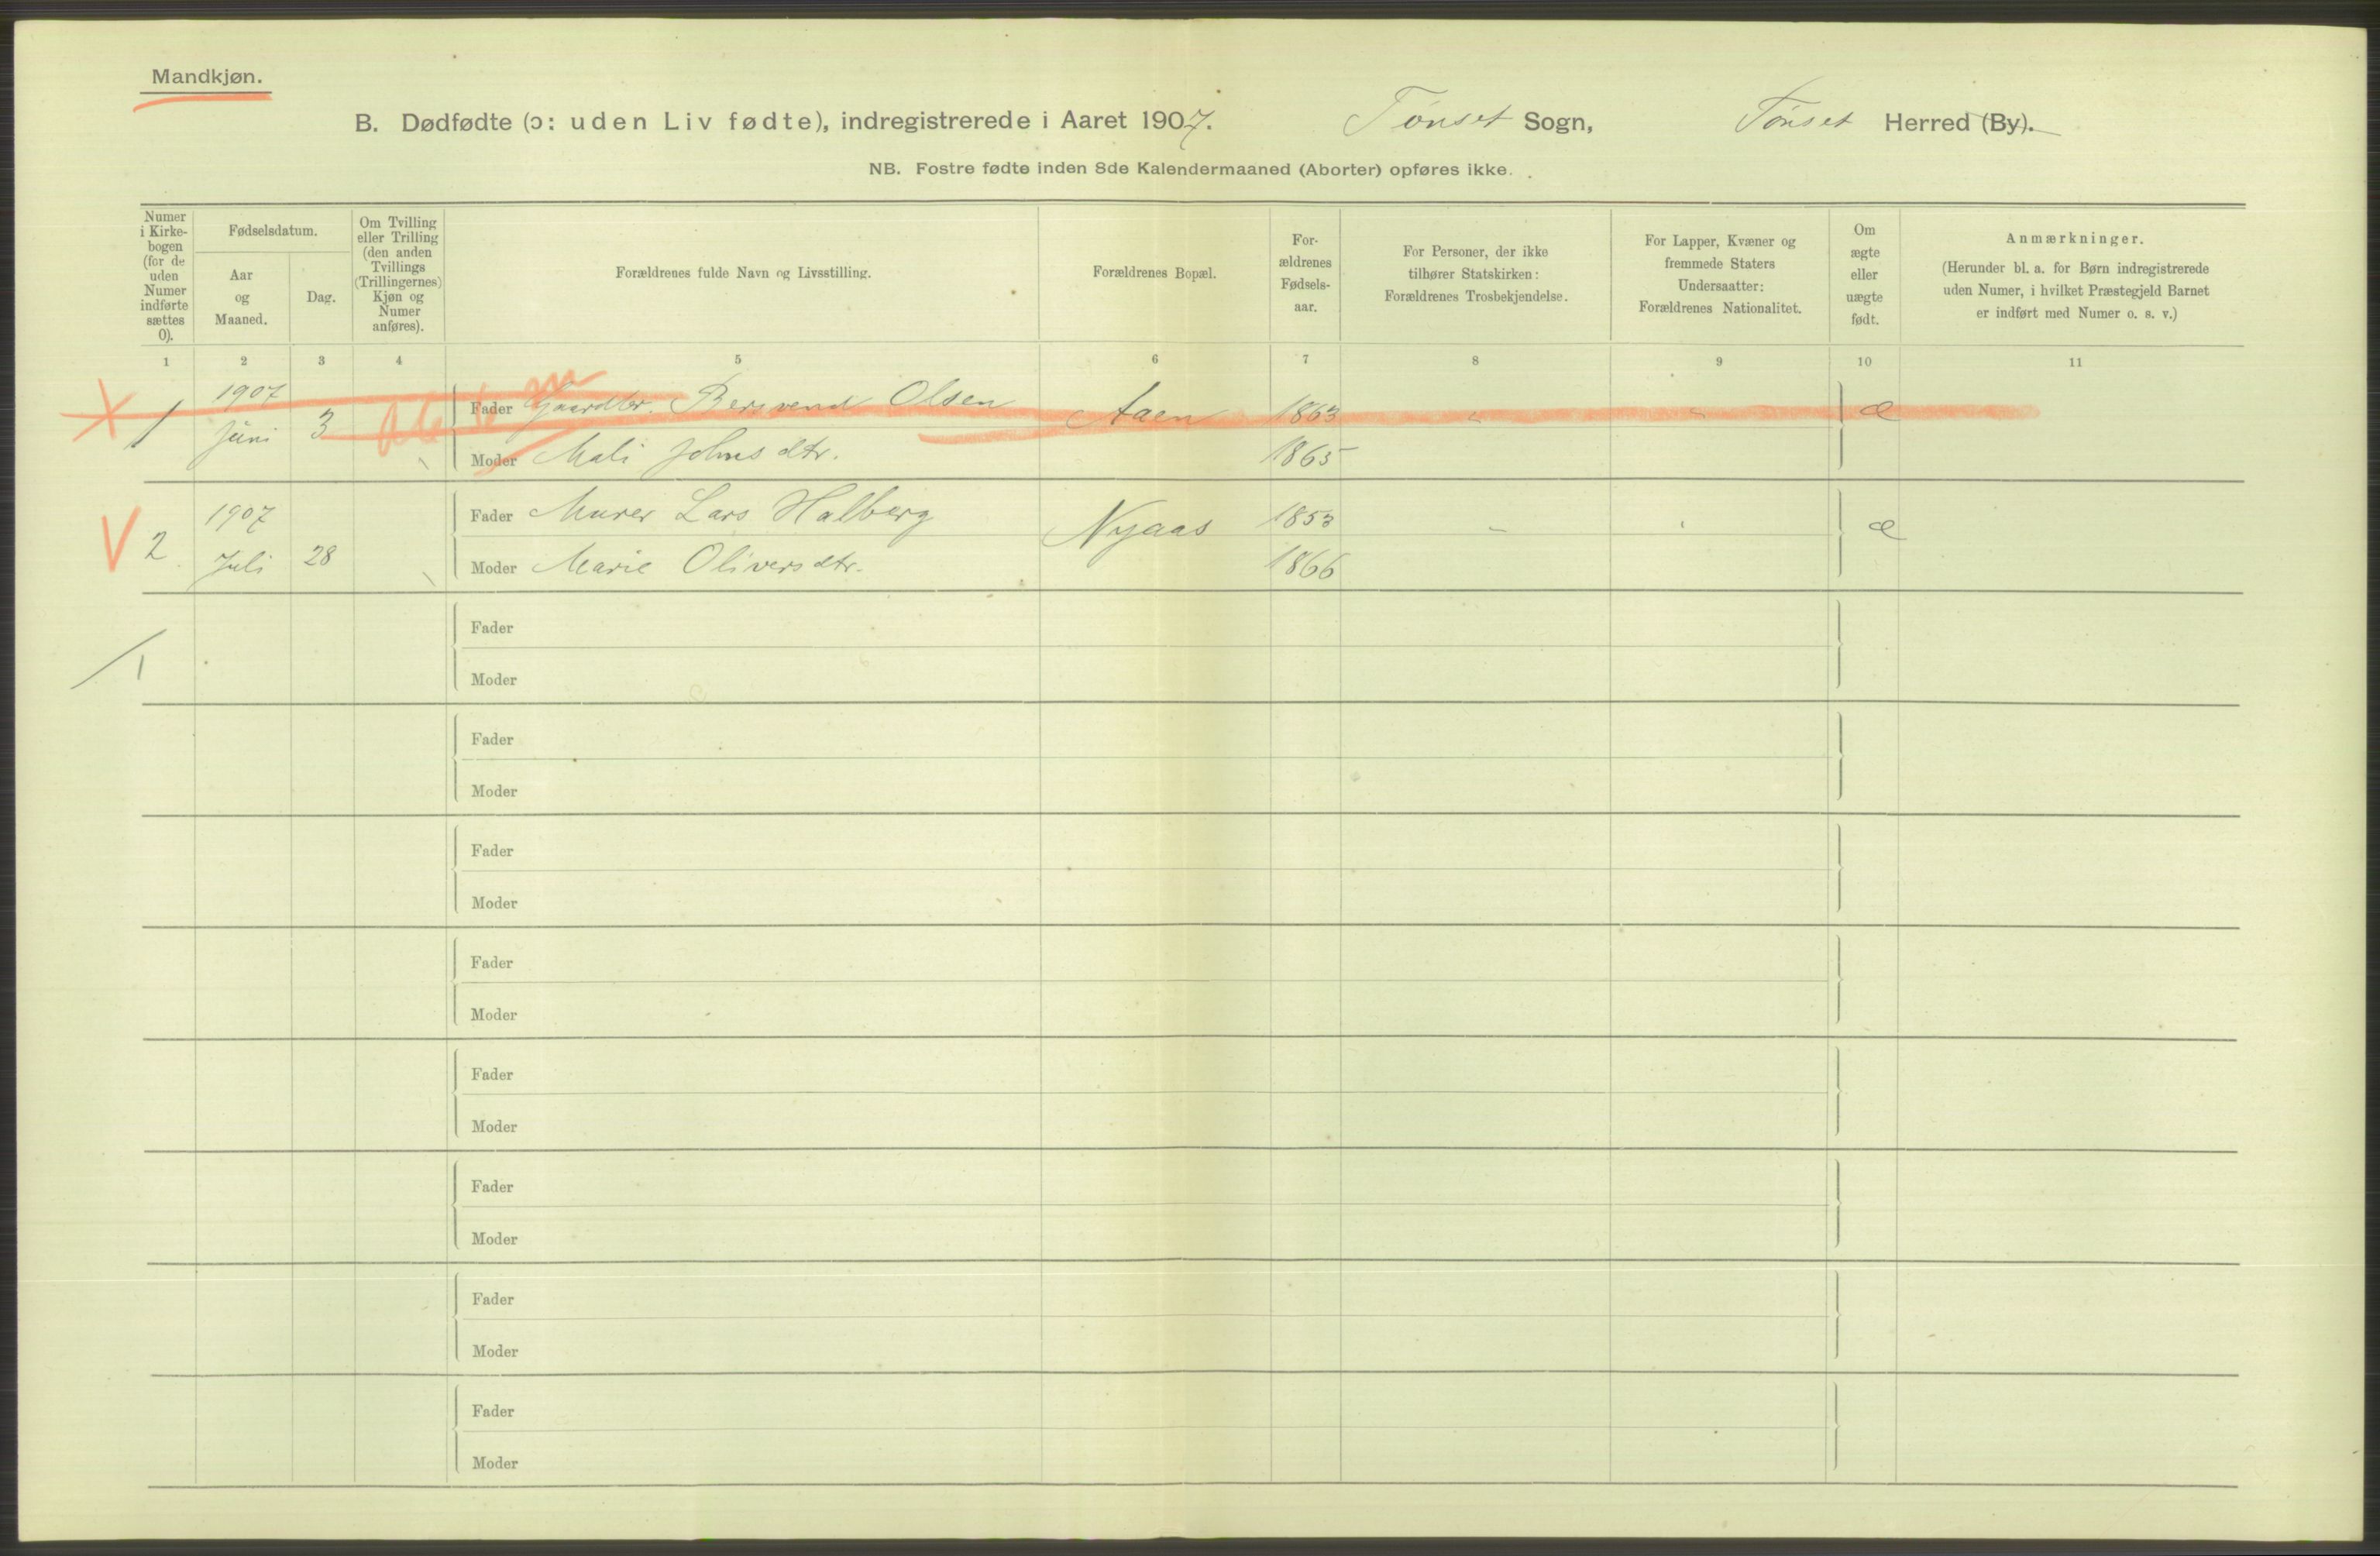 Mandkjøn.
B. Dødfødte (ɔ: uden Liv fødte), indregistrerede i Aaret 1907. Tønset Sogn, Tønset Herred (By).
NB. Fostre fødte inden 8de Kalendermaaned (Aborter) opføres ikke.
Numer i Kirkebogen (for de uden Numer indførte sættes 0).
Fødselsdatum.
Aar og Maaned.
Dag.
Om Tvilling eller Trilling (den anden Tvillings (Trillingernes) Kjøn og Numer anføres).
Forældrenes fulde Navn og Livsstilling.
Forældrenes Bopæl.
Forældrenes Fødselsaar.
For Personer, der ikke tilhører Statskirken: Forældrenes Trosbekjendelse.
For Lapper, Kvæner og fremmede Staters Undersaatter: Forældrenes Nationalitet.
Om ægte eller uægte født.
Anmærkninger.
(Herunder bl. a. for Børn indregistrerede uden Numer, i hvilket Præstegjeld Barnet er indført med Numer o. s. v.)
1 2 3 4 5 6 7 8 9 10 11
1 1907 Juni 3 Fader Gaardbr. Bersvend Olsen Aaen 1863 " " æ
Moder Mali Johnsdtr. 1865
V 2 1907 Juli 28 Fader Murer Lars Halberg Nyaas 1853 " " æ
Moder Marie Oliversdtr. 1866
1
Fader
Moder
Fader
Moder
Fader
Moder
Fader
Moder
Fader
Moder
Fader
Moder
Fader
Moder
Fader
Moder